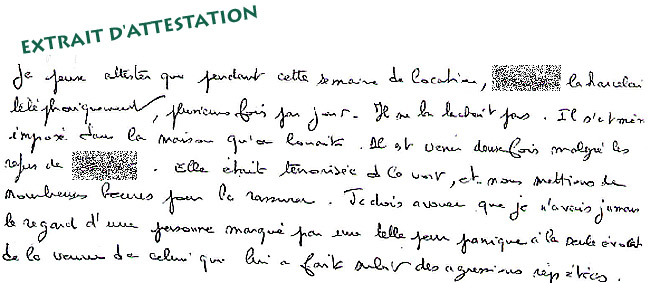 EXTRAIT D'ATTESTATION
Je peux attester que pendant cette semaine de location, la harcelait
téléphoniquement, plusieurs fois par jour. Il ne la lachait pas. Il s'est même
imposé dans la maison qu'on louait. Il est venu deux fois malgré les
refus de . Elle était terrorisée de le voir, et nous mettions de
nombreuses heures pour la rassurer. Je dois avouer que je n'avais jamais
le regard d'une personne marqué par une telle peur panique à la seule
de la venue de celui qui lui a fait subir des agressions répétées.